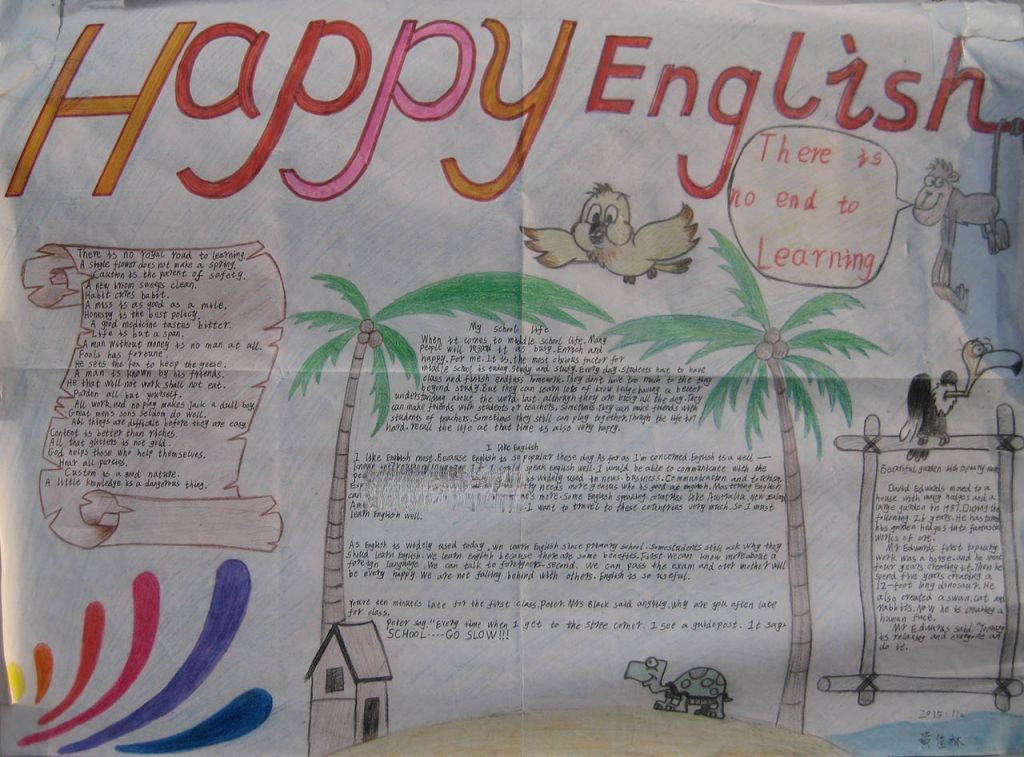 Happy English
There is
no end to
Learning
There is no royal road to learning.
A single flower does not make a spring.
Caution is the parent of safety.
A new broom sweeps clean.
Habit cures habit.
A miss is as good as a mile.
Honesty is the best policy.
A good medicine tastes bitter.
Life is but a span.
A man without money is no man at all.
Fools has fortune.
He sets the fox to keep the geese.
A man is known by his friends.
He that will not work shall not eat.
Pardon all but yourself.
All work and no play makes Jack a dull boy.
Great men's sons seldom do well.
All things are difficult before they are easy.
Content is better than riches.
All that glitters is not gold.
God helps those who help themselves.
Hear all parties.
Custom is a good nature.
A little knowledge is a dangerous thing.
My school life
When it comes to middle school life. Many
people will regard it as busy. Enrich and
happy. For me. It is the most obvious factor for
middle school is today. Study and study. Every day. Students have to have
class and finish endless homework. They don't have too much to the thing
beyond study. But they can learn lots of knowledge. Having a better
understanding about the world. last. although they are busy all the day. They
can make friends with students or teachers. Sometimes. They can make friends with
students of teachers. Sometimes they still can play together. Though the life is
hard. recall the life at that time is also very happy.
I like English
I like English most. Because English is so popular these day. As for as I'm concerned English is a well—
speak english well. I would be able to communicate with the
is widely used in business. Communication and tourism.
needs more genius who is good at english. Mastering English
can
's more. Some English speaking countries like Australia. New Zealand
Ame
I want to travel to these countries very much. So I must
learn English well.
As English is widely used today. we learn English since primary school. Some students still ask why they
should learn English. We learn english because there are some benefits. First. We can know more about a
foreign language. We can talk to foreigners. second. We can pass the exam and our mother will
be every happy. We are not falling behind with others. English is so useful.
You're ten minutes late for the first class. Peter. Mrs Black said angrily. why are you often late
for class.
Peter say. "Every time when I get to the Stree corner. I see a guidepost. It say:
SCHOOL----GO SLOW!!!
Beautiful garden
David Edwards moved to a
house with many hedges and a
large garden in 1987. During the
following 26 years. He has turned
his garden hedges into fantastic
works of art.
Mr Edwards first topiary
work was a horse. and he spent
four years creating it. Then he
spend five years creating a
12-foot long dinosaur. He
also created a swan. cat and
rabbits. Now he is creating a
human face.
Mr Edwards said "Topiary
is relaxing and everyone can
do it.
2015.11.
黄佳林